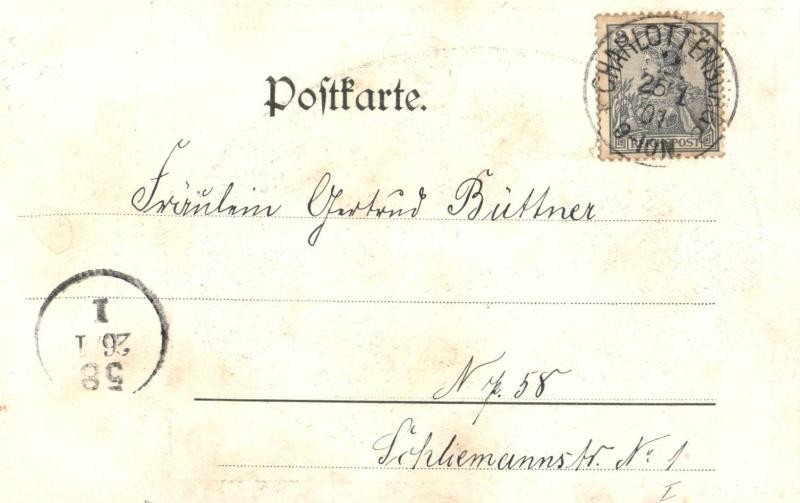 Postkarte.
CHARLOTTENBURG
2
26 1
01
REICHSPOST
Fräulein Gertrud Büttner
58
26/1
1
N p. 58
Schliemannstr. No 1
I